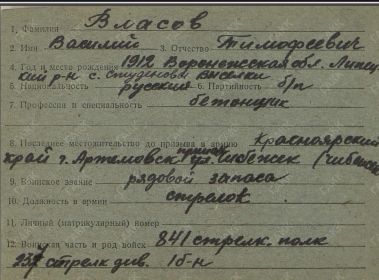 1. Фамилия Власов
2. Имя Василий 3. Отчество Тимофеевич
4. Год и место рождения 1912 Воронежская обл. Липец-
кий р-н с. Студеновы Выселки
5. Национальность русский 6. Партийность б/п
7. Профессия и специальность бетонщик
8. Последнее местожительство до призыва в армию Красноярский
край г. Артемовск
9. Воинское звание рядовой запаса
10. Должность в армии стрелок
11. Личный (матрикулярный) номер
12. Воинская часть и род войск 841 стрелк. полк
стрелк див. 1 б-н